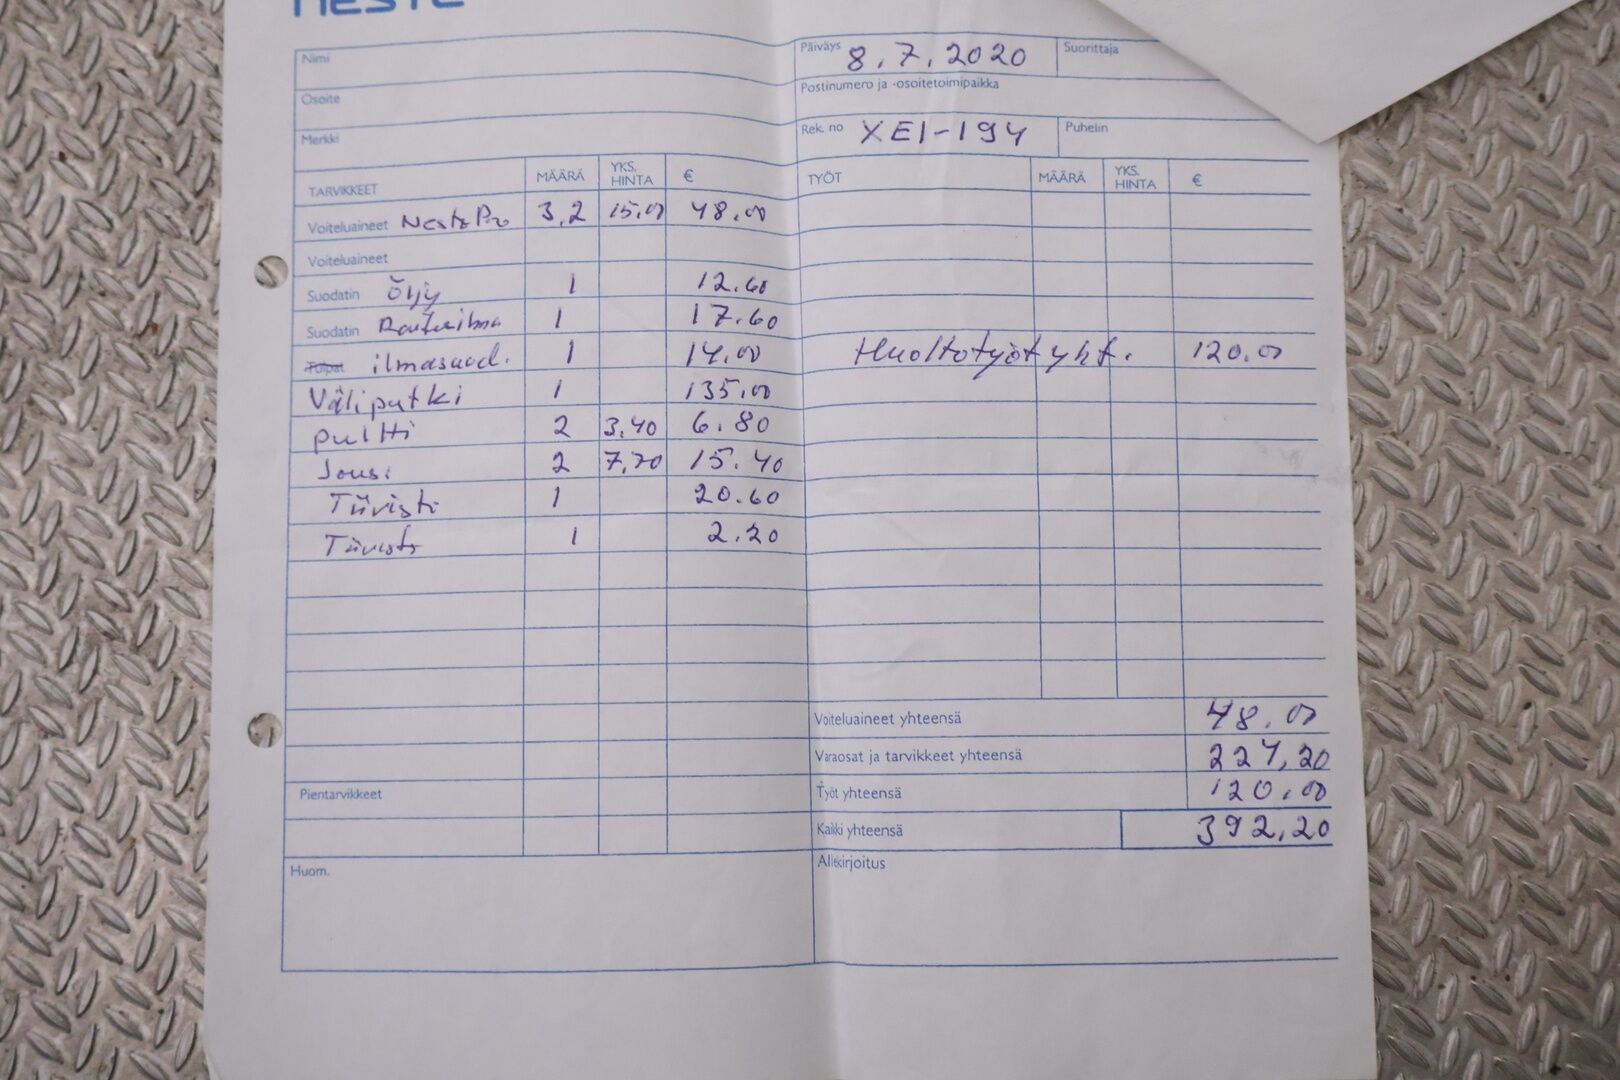 NESTE
Nimi Päiväys 8.7.2020 Suorittaja
Osoite Postinumero ja -osoitetoimipaikka
Merkki Rek. no XEI-194 Puhelin
TARVIKKEET MÄÄRÄ YKS. HINTA € TYÖT MÄÄRÄ YKS. HINTA €
Voiteluaineet Neste Pro 3,2 15,00 48.00
Voiteluaineet
Suodatin Öljy 1 12.60
Suodatin Raitisilma 1 17.60
Tulpat ilmasuod. 1 14.00 Huoltotyöt yht. 120.00
Väliputki 1 135,00
pultti 2 3,40 6.80
Jousi 2 7,70 15.40
Tiiviste 1 20.60
Tiiviste 1 2.20
Voiteluaineet yhteensä 48.00
Varaosat ja tarvikkeet yhteensä 224,20
Pientarvikkeet Työt yhteensä 120,00
Kaikki yhteensä 392,20
Huom. Allekirjoitus